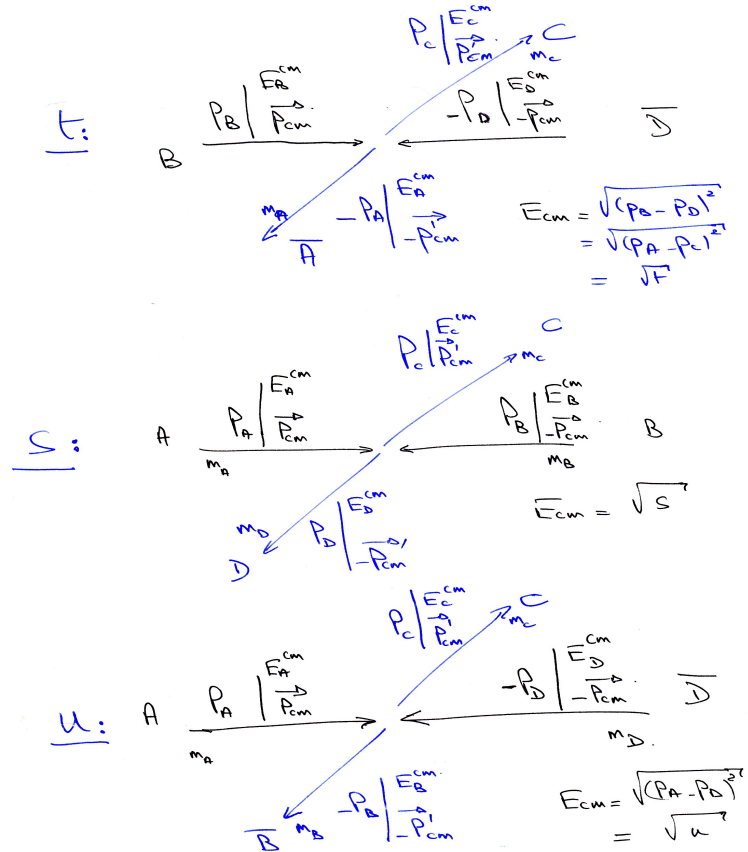 t:
P_C | E_C^cm
P⃗'_cm
C
m_C
P_B | E_B^cm
P⃗_cm
-P_D | E_D^cm
-P⃗_cm
B
D̅
m_A
A̅
-P_A | E_A^cm
-P⃗'_cm
E_cm = √(P_B - P_D)²
= √(P_A - P_C)²
= √t
S:
P_C | E_C^cm
P⃗'_cm
C
m_C
A
P_A | E_A^cm
P⃗_cm
P_B | E_B^cm
-P⃗_cm
B
m_A
m_B
E_cm = √S
m_D
D
P_D | E_D^cm
-P⃗'_cm
u:
P_C | E_C^cm
P⃗'_cm
C
m_C
A
P_A | E_A^cm
P⃗_cm
-P_D | E_D^cm
-P⃗_cm
D̅
m_A
m_D.
B̅
m_B
-P_B | E_B^cm
-P⃗'_cm
E_cm = √(P_A - P_D)²
= √u